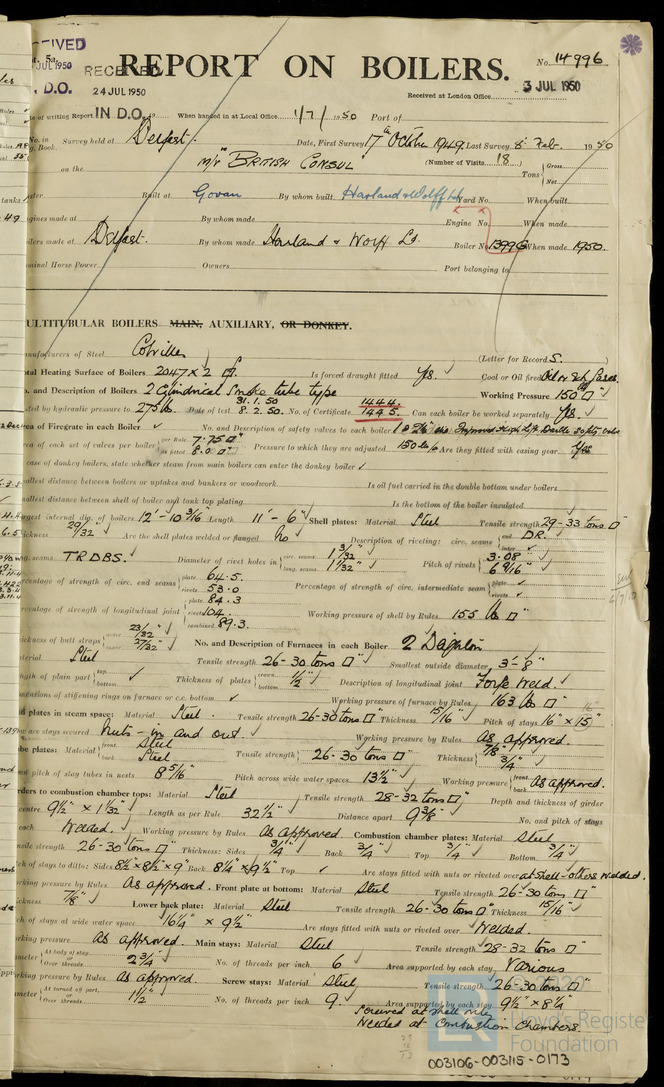 RECEIVED
JUL 1950
D.O.
RECEIVED
24 JUL 1950
IN D.O.
REPORT ON BOILERS.
No. 14996
Received at London Office 3 JUL 1950
te of writing Report When handed in at Local Office 1/7/1950 Port of
No. in Survey held at Belfast. Date, First Survey 17th October 1949 Last Survey 8th Feb. 1950
g. Book. (Number of Visits 18)
on the M/V "BRITISH CONSUL" Tons Gross Net
Built at Govan By whom built Harland & Wolff Ltd Yard No. When built
gines made at By whom made Engine No. When made
ilers made at Belfast. By whom made Harland & Wolff Ld. Boiler No. 1399G When made 1950.
minal Horse Power Owners Port belonging to
ULTITUBULAR BOILERS MAIN, AUXILIARY, OR DONKEY.
nufacturers of Steel Colvilles (Letter for Record S.
otal Heating Surface of Boilers 2047 x 2 Is forced draught fitted Yes. Coal or Oil fired Oil or Exh. Gases.
o. and Description of Boilers 2 Cylindrical Smoke tube type Working Pressure 150
sted by hydraulic pressure to 275 lb. Date of test 31.1.50 8.2.50. No. of Certificate 1444. 1445. Can each boiler be worked separately Yes.
ea of Firegrate in each Boiler No. and Description of safety valves to each boiler Improved High Lift Double Safety Valve
ea of each set of valves per boiler per Rule 7.75 □" as fitted 8.0 □" Pressure to which they are adjusted 150 lb Are they fitted with easing gear Yes
case of donkey boilers, state whether steam from main boilers can enter the donkey boiler
allest distance between boilers or uptakes and bunkers or woodwork. Is oil fuel carried in the double bottom under boilers
allest distance between shell of boiler and tank top plating Is the bottom of the boiler insulated
rgest internal dia. of boilers 12'-10 3/16" Length 11'-6" Shell plates: Material Steel Tensile strength 29-33 tons □"
ickness 29/32" Are the shell plates welded or flanged No Description of riveting: circ. seams end D.R. inter.
ng. seams T.R.D.B.S. Diameter of rivet holes in circ. seams 1 3/32" long. seams 1 1/32" Pitch of rivets 3.08" 6 9/16"
rcentage of strength of circ. end seams plate 64.5. rivets 53.0 Percentage of strength of circ. intermediate seam plate rivets
rcentage of strength of longitudinal joint plate 84.3 rivets 104. combined 89.3. Working pressure of shell by Rules 155 lb □"
ickness of butt straps outer 23/32" inner 27/32" No. and Description of Furnaces in each Boiler 2 Deighton
aterial Steel Tensile strength 26-30 tons □" Smallest outside diameter 3'-8"
ngth of plain part top bottom Thickness of plates crown bottom 1/2" Description of longitudinal joint Forge Weld.
mensions of stiffening rings on furnace or c.c. bottom Working pressure of furnace by Rules 163 lb □"
d plates in steam space: Material Steel. Tensile strength 26-30 tons □" Thickness 15/16" Pitch of stays 16" x 15"
ow are stays secured Nuts - in and out. Working pressure by Rules As approved.
be plates: Material front Steel back Steel Tensile strength 26-30 tons □" Thickness 7/8" 3/4"
ean pitch of stay tubes in nests 8 5/16" Pitch across wide water spaces 13 1/2" Working pressure front back As approved.
rders to combustion chamber tops: Material Steel Tensile strength 28-32 tons □" Depth and thickness of girder
centre 9 1/2" x 1 1/32" Length as per Rule 32 1/2" Distance apart 9 3/8" No. and pitch of stays
each Welded. Working pressure by Rules As approved Combustion chamber plates: Material Steel
nsile strength 26-30 tons □" Thickness: Sides 3/4" Back 3/4" Top 3/4" Bottom 3/4"
tch of stays to ditto: Sides 8 1/2" x 8 1/2" x 9" Back 8 1/4" x 9 1/2" Top Are stays fitted with nuts or riveted over at shell - others welded.
rking pressure by Rules As approved. Front plate at bottom: Material Steel Tensile strength 26-30 tons □"
7/8" Lower back plate: Material Steel Tensile strength 26-30 tons □" Thickness 15/16"
ch of stays at wide water space 16 1/4" x 9 1/2" Are stays fitted with nuts or riveted over Welded.
rking pressure As approved. Main stays: Material Steel Tensile strength 28-32 tons □"
meter At body of stay or Over threads 2 3/4" No. of threads per inch 6 Area supported by each stay Various
rking pressure by Rules As approved. Screw stays: Material Steel Tensile strength 26-30 tons □"
meter At turned off part, or Over threads 1 1/2" No. of threads per inch 9. Area supported by each stay 9 1/2" x 8 1/4"
Screwed at shell only
Welded at Combustion Chambers.
© 2020
LR
Lloyd's Register
Foundation
003106-003115-0173